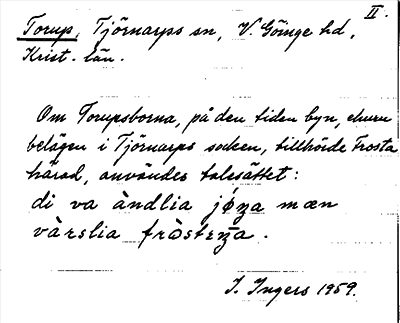 II.
Torup, Tjörnarps sn, V. Göinge hd,
Krist. län.
Om Torupsborna, på den tiden byn, ehuru
belägen i Tjörnarps socken, tillhörde Frosta
härad, användes talesättet:
di va àndlia jǿna mæn
vàrslia fròstena.
I. Ingers 1959.